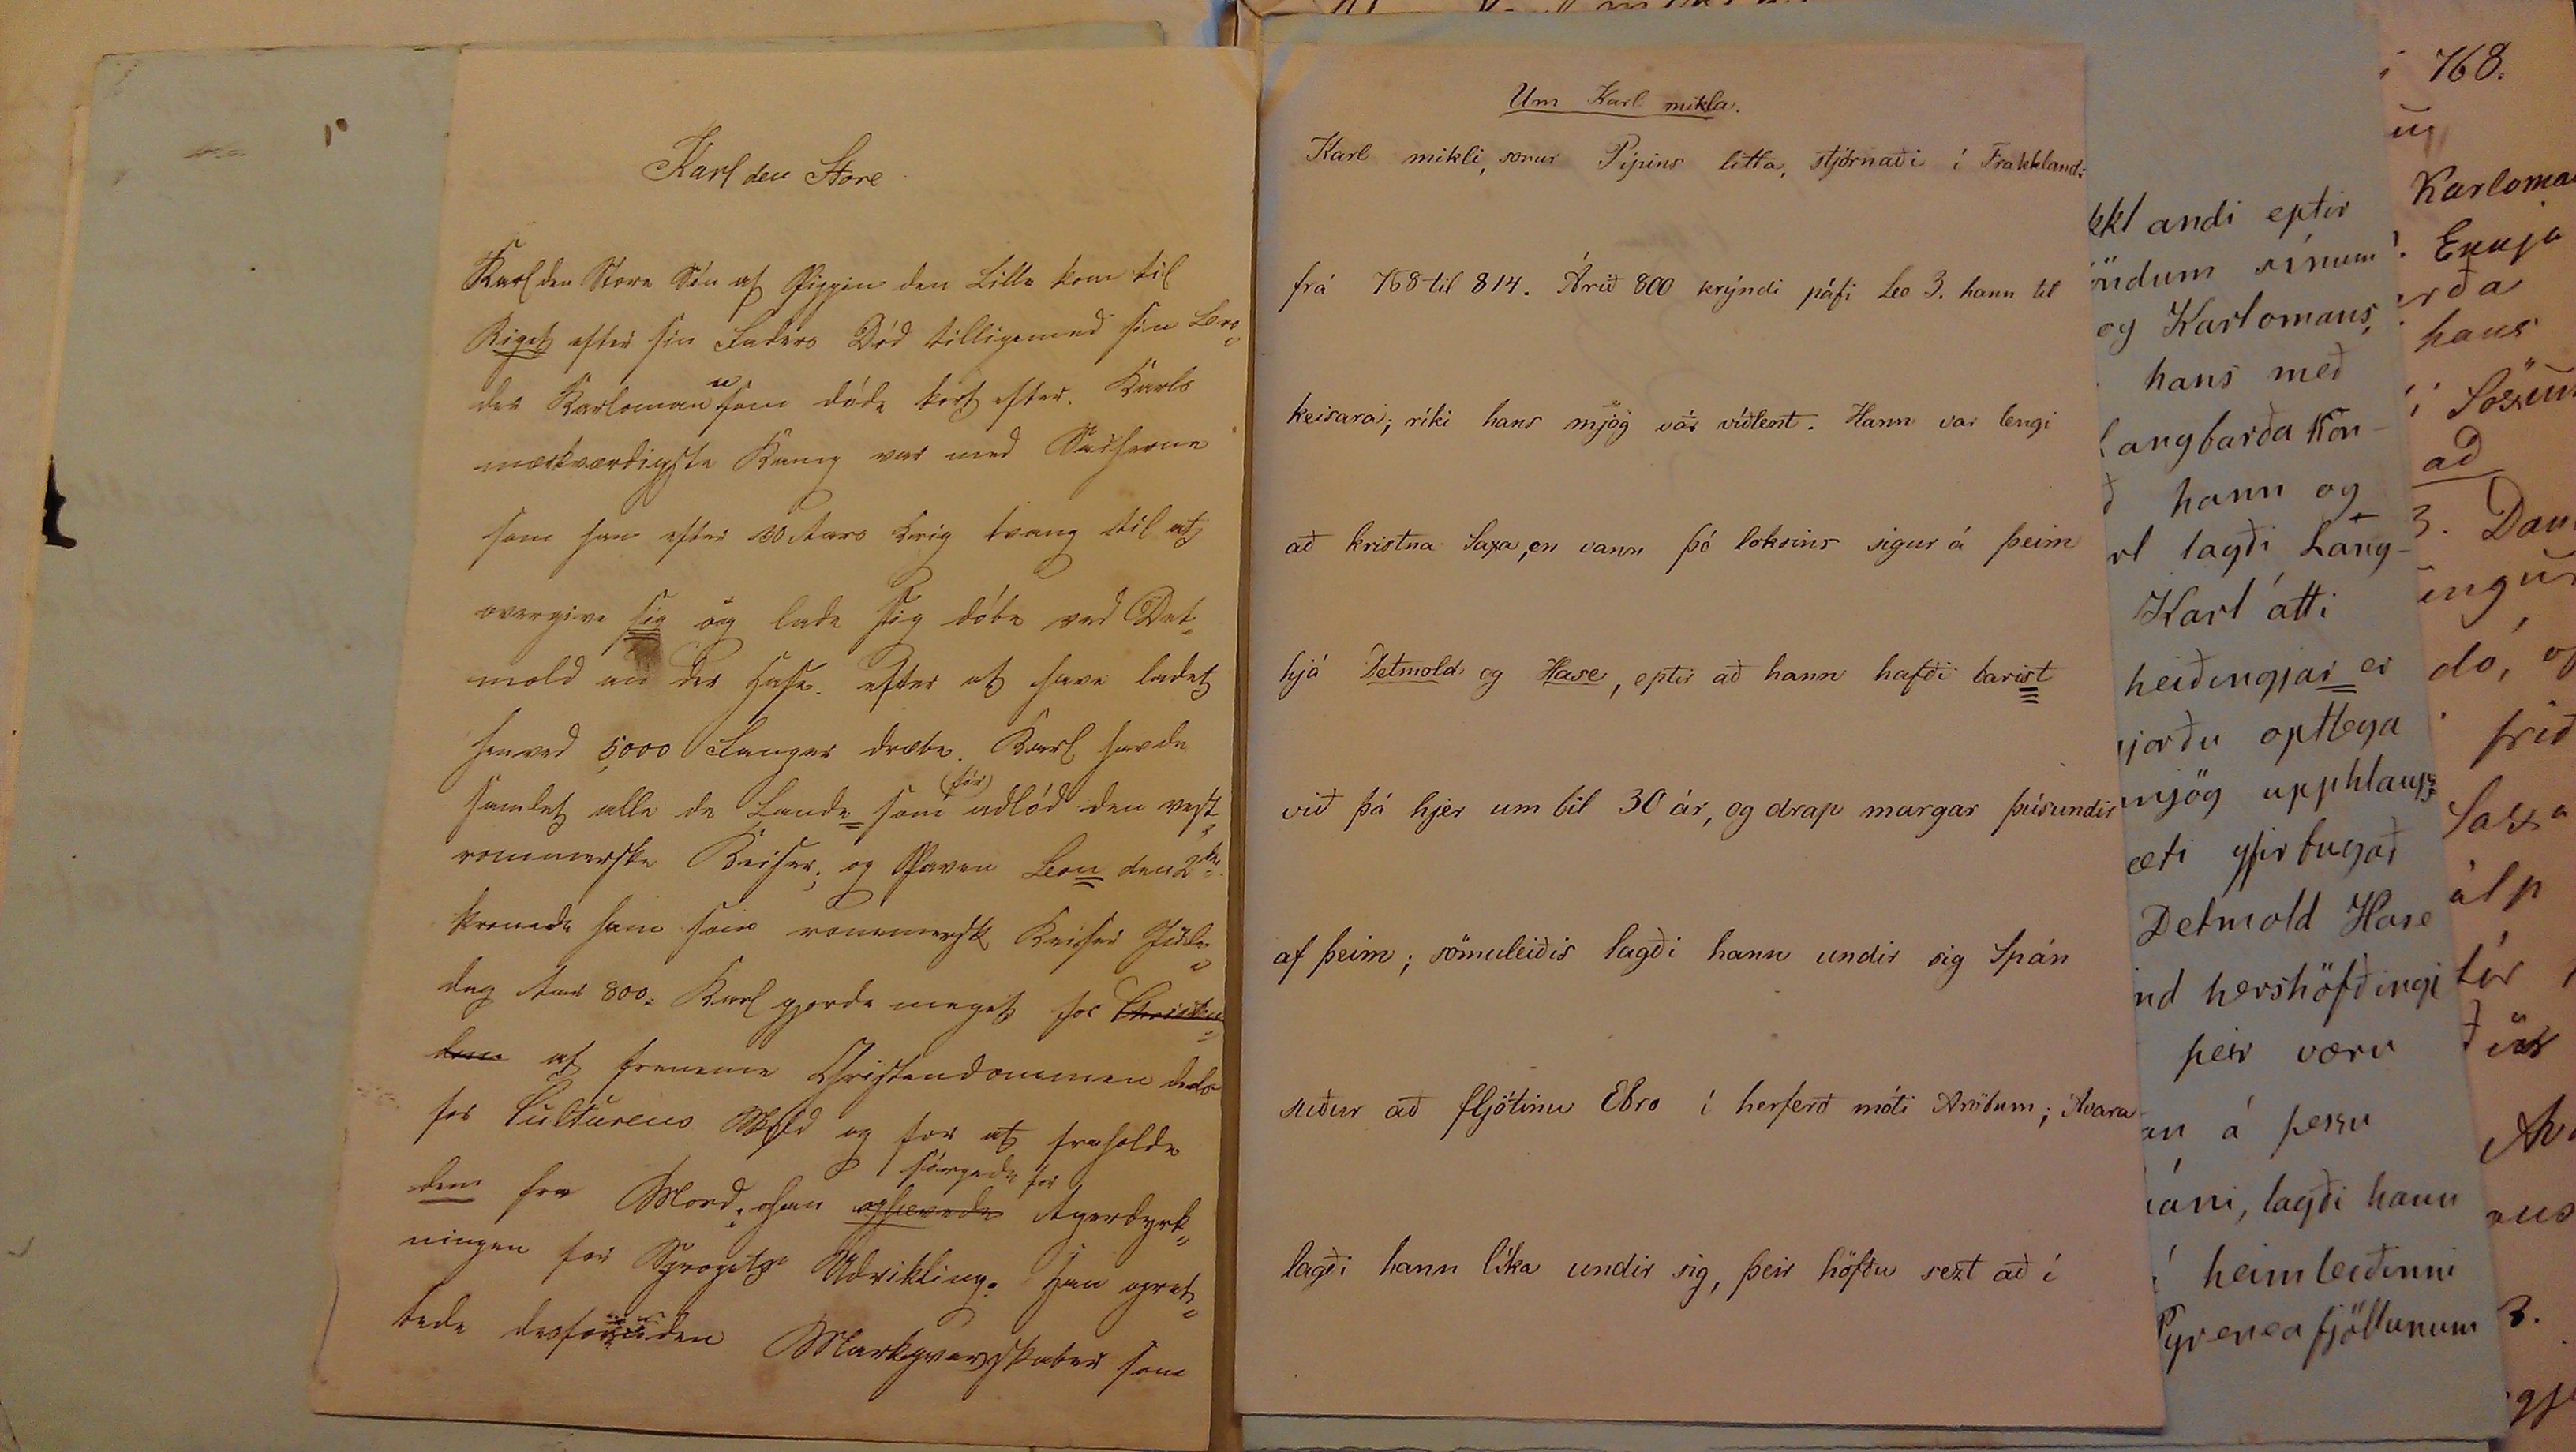 Karl den Store
Karl den Store Sön af Pippin den Lille kom til
Riget efter sin Faders Död tilligemed sin Bro„
der Karloman som döde kort efter. Karls
mærkværdigste Krig var med Sachserne
som han efter 30 Aars Krig tvang til at
overgive sig og lade sig döbe ved Det„
mold an der Hase. efter at have ladet
henved 5,000 Fanger dræbe. Karl havde
samlet alle de Lande som (før) adlöd den vest„
rommerske Keiser; og Paven Leon den 2den
kronede ham som rommersk Keiser Jule„
dag Aar 800. Karl gjorde meget for Christen„
dom at fremme Christendommen dels
for Culturens Skyld og for at freholde
dem fra Mord; han ophævede sörgede for Agerdyrk„
ningen for Sprogets Udvikling. Han opret„
tede desforuden Markgrevskaber som
Um Karl mikla.
Karl mikli, sonur Pípins litla, stjórnaði í Frakklandi
frá 768 til 814. Árið 800 krýndi páfi Leo 3. hann til
keisara; ríki hans mjög var víðlent. Hann var lengi
að kristna Saxa, en vann þó loksins sigur á þeim
hjá Detmold og Hase, eptir að hann hafði barist
við þá hjer um bil 30 ár, og drap margar þúsundir
af þeim; sömuleiðis lagði hann undir sig Spán
suður að fljótinu Ebro í herferð móti Aröbum; Avara
lagði hann líka undir sig, þeir höfðu sezt að í
kkl andi eptir
öndum sínum
og Karlomans,
hans með
Langbarða kon-
ð hann og
rl lagði Lang-
Karl átti
heiðingjar er
gjorðu optlega
mjög upphlaups
æti yfirbugað
Detmold Hase
nd hershöfðingi
þeir voru
an á þessu
páni, lagði hann
í heimleiðinni
Pyreneafjöllunum
768.
ug
Karloman
Ekkja
rða
hans
í Söxum
að
3. Dan
ingur
dó, og
frið
Saxa
álp
tír
ð
Av
aus
3.
gj